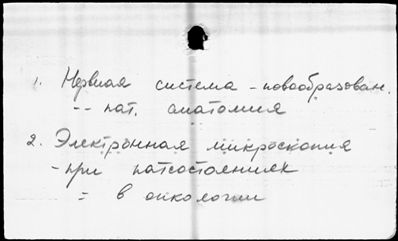 1. Нервная система - новообразован.
-- пат. анатомия
2. Электронная микроскопия
- при патсостояниях
= в онкологии